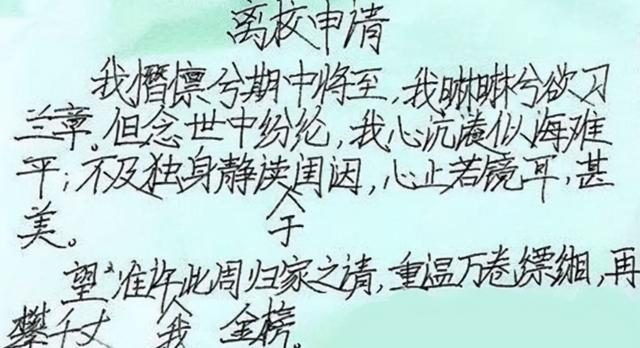 离校申请
我憯懔兮期中将至,我啉啉兮欲习
兰章。但念世中纷纶,我心沉似海难
平;不及独身静读闺,心止若镜耳,甚
美。 于
望准许此周归家之请,重温万卷缥缃,再
攀千丈 我 金榜。